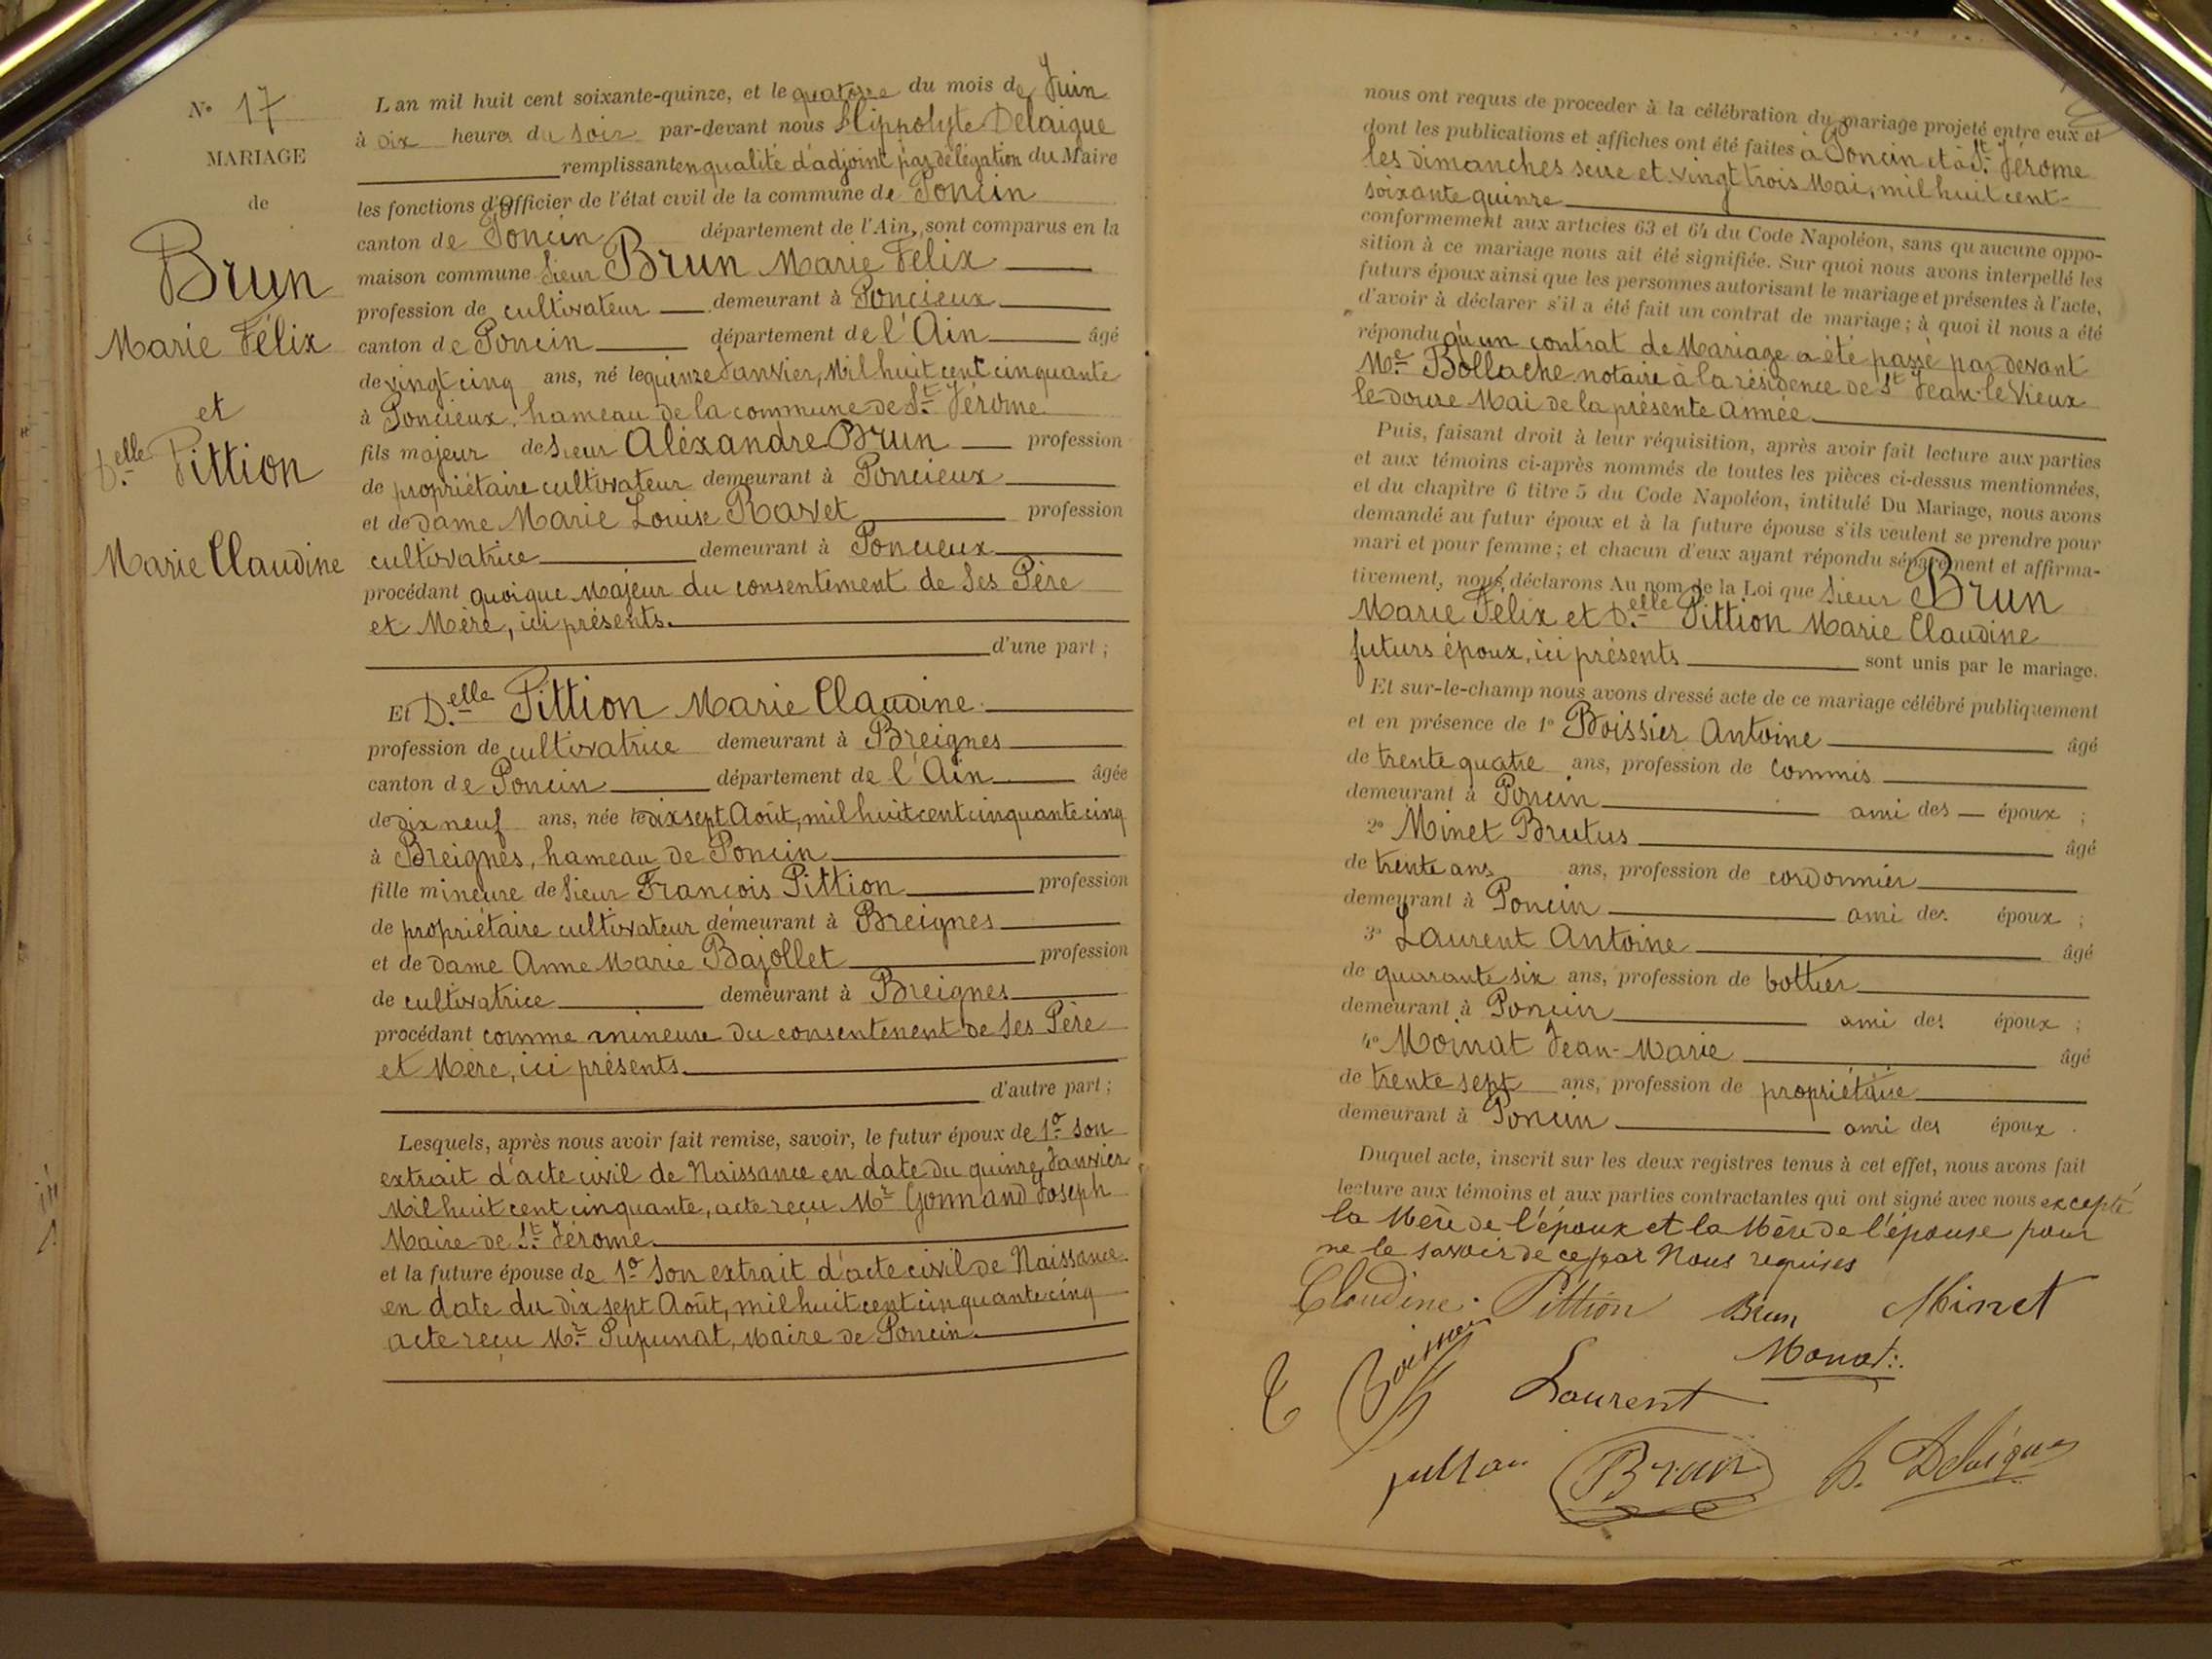 N° 17
MARIAGE
de
Brun
Marie Félix
et
D.elle Pittion
Marie Claudine
L'an mil huit cent soixante-quinze, et le quatorze du mois de Juin
à dix heures du soir par-devant nous Hippolyte Delaigue
remplissant en qualité d'adjoint par délégation du Maire
les fonctions d'Officier de l'état civil de la commune de Poncin
canton de Poncin département de l'Ain, sont comparus en la
maison commune Sieur Brun Marie Félix
profession de cultivateur demeurant à Poncieux
canton de Poncin département de l'Ain âgé
de vingt cinq ans, né le quinze Janvier, Mil huit cent cinquante
à Poncieux, hameau de la commune de St. Jérome
fils majeur de Sieur Aléxandre Brun profession
de propriétaire cultivateur demeurant à Poncieux
et de Dame Marie Louise Ravet profession
cultivatrice demeurant à Poncieux
procédant quoique Majeur du consentement de Ses Père
et Mère, ici présents.
d'une part ;
Et D.elle Pittion Marie Claudine.
profession de cultivatrice demeurant à Breignes
canton de Poncin département de l'Ain âgée
de dix neuf ans, née le dix sept Août, mil huit cent cinquante cinq
à Breignes, hameau de Poncin
fille mineure de Sieur François Pittion profession
de propriétaire cultivateur demeurant à Breignes
et de Dame Anne Marie Bajollet profession
de cultivatrice demeurant à Breignes
procédant comme mineure du consentement de Ses Père
et Mère, ici présents.
d'autre part ;
Lesquels, après nous avoir fait remise, savoir, le futur époux de 1° son
extrait d'acte civil de Naissance en date du quinze Janvier
Mil huit cent cinquante, acte reçu Mr Gonnand Joseph
Maire de St. Jérome.
et la future épouse de 1° Son extrait d'acte civil de Naissance
en date du dix sept Août, mil huit cent cinquante cinq
acte reçu Mr. Pupunat, Maire de Poncin.
nous ont requis de procéder à la célébration du mariage projeté entre eux et
dont les publications et affiches ont été faites à Poncin et à St. Jérome
les dimanches seize et vingt trois Mai, mil huit cent
soixante quinze
conformément aux articles 63 et 64 du Code Napoléon, sans qu'aucune oppo-
sition à ce mariage nous ait été signifiée. Sur quoi nous avons interpellé les
futurs époux ainsi que les personnes autorisant le mariage et présentes à l'acte,
d'avoir à déclarer s'il a été fait un contrat de mariage ; à quoi il nous a été
répondu qu'un contrat de Mariage a été passé par devant
Me. Bollache notaire à la résidence de St Jean-le Vieux
le douze Mai de la présente année.
Puis, faisant droit à leur réquisition, après avoir fait lecture aux parties
et aux témoins ci-après nommés de toutes les pièces ci-dessus mentionnées,
et du chapitre 6 titre 5 du Code Napoléon, intitulé Du Mariage, nous avons
demandé au futur époux et à la future épouse s'ils veulent se prendre pour
mari et pour femme ; et chacun d'eux ayant répondu séparément et affirma-
tivement, nous déclarons Au nom de la Loi que Sieur Brun
Marie Félix et D.elle Pittion Marie Claudine
futurs époux, ici présents sont unis par le mariage.
Et sur-le-champ nous avons dressé acte de ce mariage célébré publiquement
et en présence de 1° Boissier Antoine âgé
de trente quatre ans, profession de Commis
demeurant à Poncin ami des époux ;
2° Minet Brutus âgé
de trente ans ans, profession de cordonnier
demeurant à Poncin ami des époux ;
3° Laurent Antoine âgé
de quarante six ans, profession de bottier
demeurant à Poncin ami des époux ;
4° Moinat Jean-Marie âgé
de trente sept ans, profession de propriétaire
demeurant à Poncin ami des époux .
Duquel acte, inscrit sur les deux registres tenus à cet effet, nous avons fait
lecture aux témoins et aux parties contractantes qui ont signé avec nous excepté
la Mère de l'époux et la Mère de l'épouse pour
ne le savoir de ce par Nous requises
Claudine Pittion Brun Minet
Monat
Laurent
Brun H. Delaigue